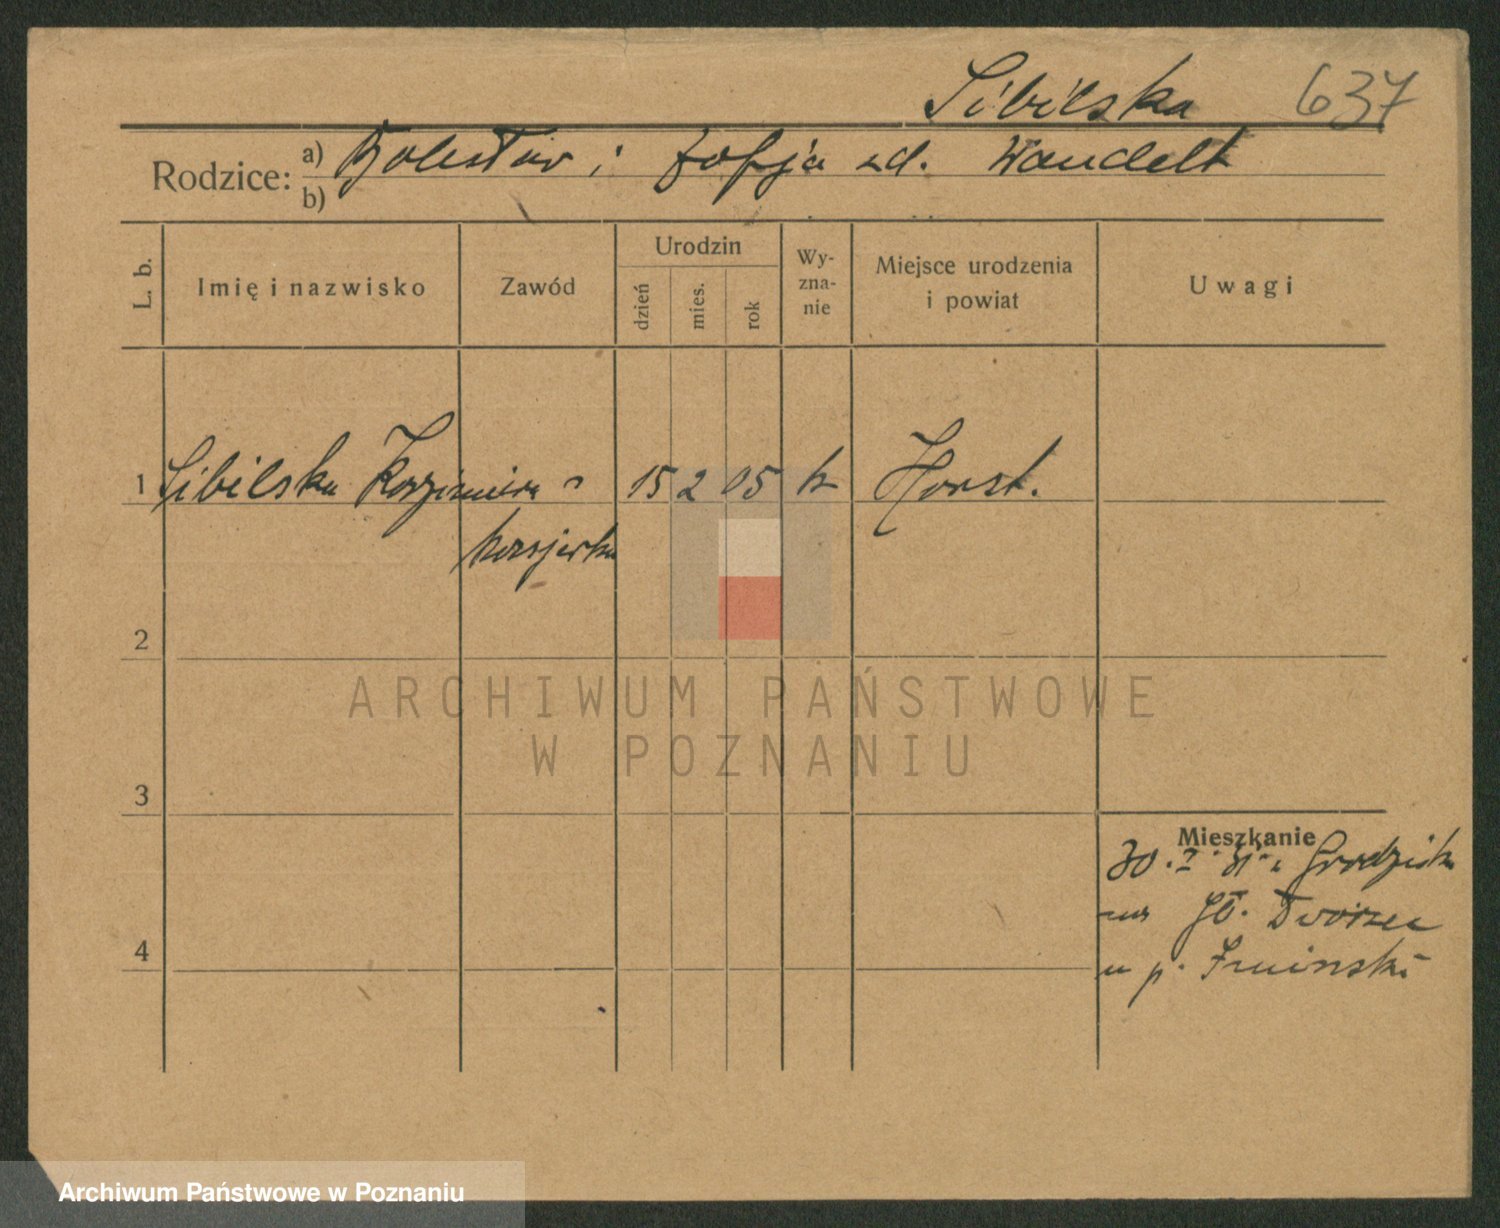 Sibilska 637
Rodzice: a) Bolesław i Zofja zd. Wandelt
b)
L. b. Imię i nazwisko Zawód Urodzin dzień mies. rok Wyznanie Miejsce urodzenia i powiat Uwagi
1 Sibilska Kazimiera 15 2 05 k Horst.
kasjerka
2
ARCHIWUM PAŃSTWOWE
W POZNANIU
3
Mieszkanie
30. I. 31. z Grodziska
na Gł. Dworzec
4
u p.
Archiwum Państwowe w Poznaniu